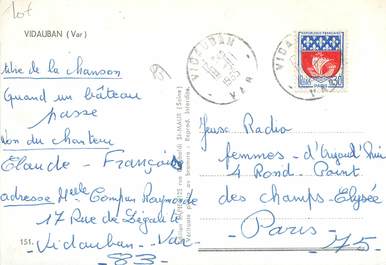 lot
VIDAUBAN (Var)
titre de la chanson
Quand un bâteau
passe
Nom du chanteur
Claude - François
adresse Melle Compan Raymonde
17 Rue de L'égalité
151. - Vidauban - Var -
- 83 -
VIDAUBAN
VAR
VIDAUBAN
REPUBLIQUE FRANÇAISE
0,30
PARIS
Jeux Radio
femmes - d'Aujourd'hui
4 Rond - Point
des champs - Elysée
- Paris -
- 75 -
St-MAUR (Seine)
Reprod. Interdite.